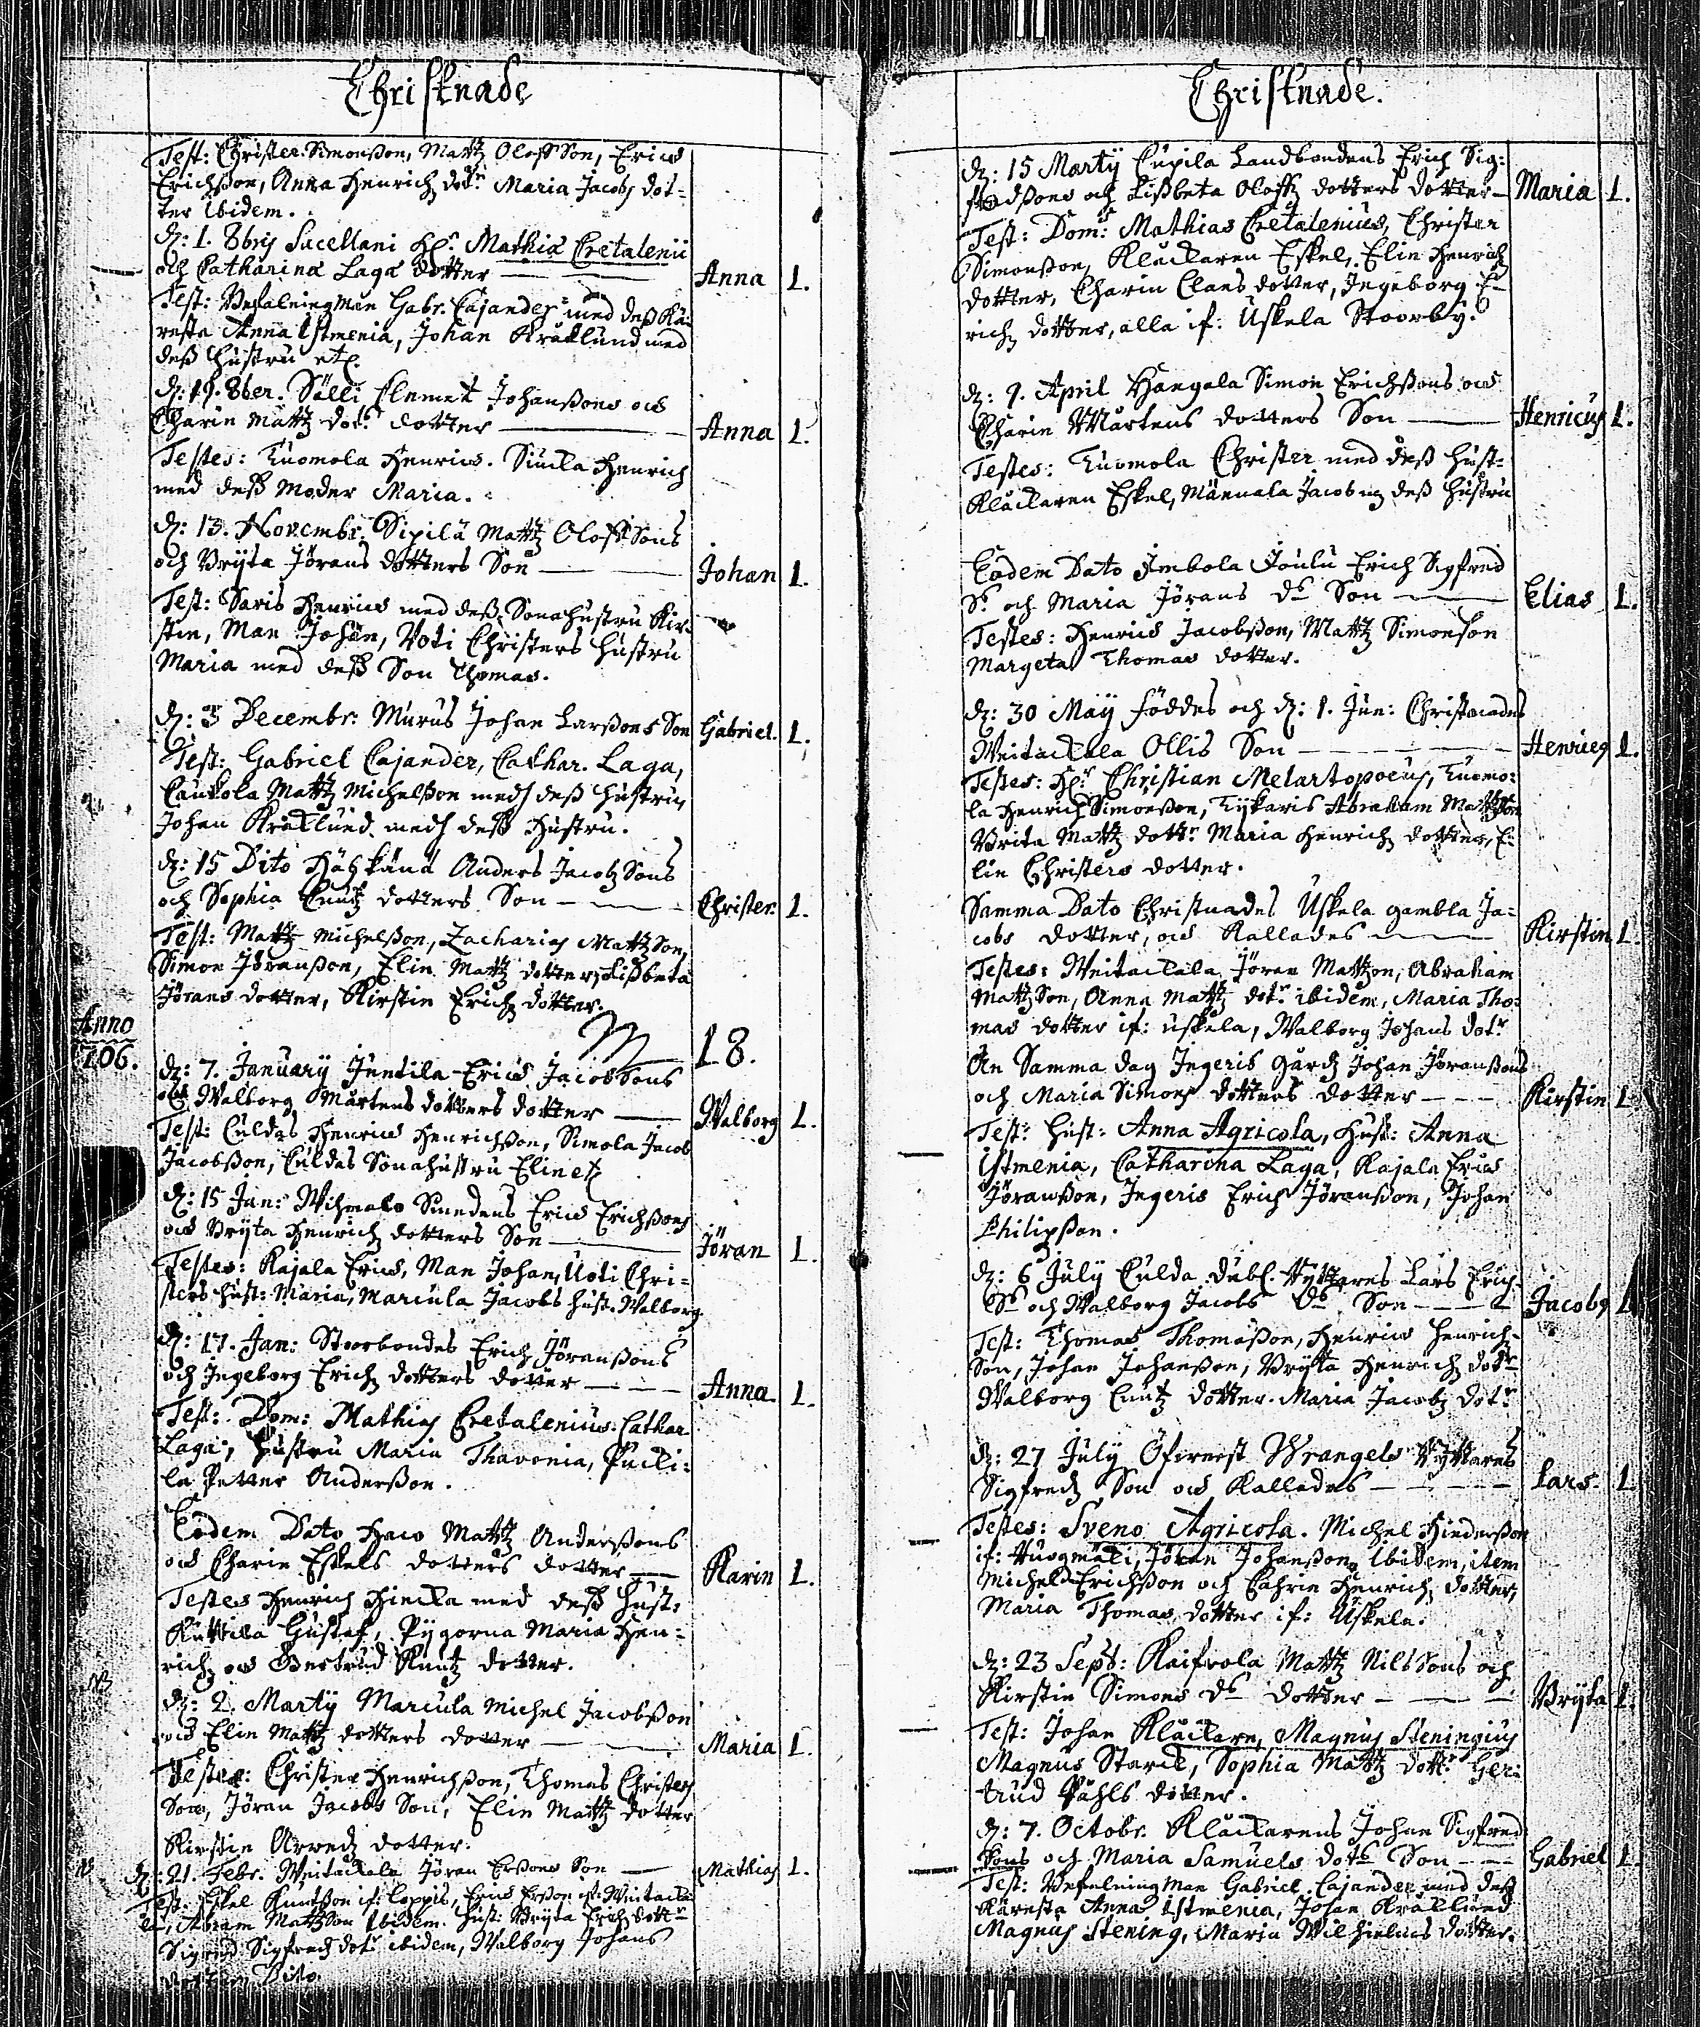 Christnade
Test: Christer Simonßon, Mattz Oloffson, Erich
Erichßon, Anna Henrichz dotr Maria Jacobz dot-
ter ibidem.
dz: 1. 8bris Sacellani Hr. Mathiæ Cretalenii
och Catharinæ Laga dotter Anna 1.
Test: Befalningzman Gabr: Cajander med deß Kä-
resta Anna Istmenia, Johan Kråklund med
deß hustru etc.
dz: 19. 8ber. Sälli Clemet Johanßons och
Charin Mattz dotrs dotter Anna 1.
Testes: Tuomola Henrich. Henrich
med deß moder Maria.
dz: 13. Novembr. Sipilä Mattz Oloffsons
och Bryta Jörans dotters Son Johan 1.
Test: Saris Henrich med deß Sonahustru Kir-
stin, Man Johan, Voti Christers hustru
Maria med deß Son Thomas.
dz: 3 Decembr: Murus Johan Larßons Son Gabriel. 1.
Test: Gabriel Cajander, Cathar. Laga,
Caukola Mattz Michelßon med deß hustru,
Johan Kråklund med deß Hustru.
dz: 15 Dito Anders Jacobz Sons
och Sophia Cnutz dotters Son Christer 1.
Test: Mattz Michelßon, Zacharias Mattzson,
Simon Jöranßon, Elin Mattz dotter, Lißbeta
Jörans dotter, Kirstin Erichz dotter.
18.
Anno
706.
dz: 7. January Juntila Erich Jacobsons
och Walborg Mårtens dotters dotter Walborg 1.
Test: Culdas Henrich Henrichßon, Simola Jacob
Jacobßon, Culdas Sonahustru Elin etc
dz: 15 Jan: Wihmalo Sinedens Erich Erichßons
och Bryta Henrichz dotters Son Jöran 1.
Testes: Kajala Erich, Man Johan, Uoti Chri-
sters hust: Maria, Marcula Jacobs hust. Walborg
dz: 17. Jan: Storbondes Erich Jöranßons
och Ingeborg Erichz dotters dotter Anna 1.
Test: Dom: Mathias Cretalenius. Cathar
Laga, hustru Maria Thavonia, Pucki-
la Petter Anderßon.
Eodem Dato Haco Mattz Anderßons
och Charin Eskels dotters dotter Karin 1.
Testes Henrich Hiecka med deß hust:
Kuttila Gustaf, Pygorna Maria Hen-
richz och Gertrud Knutz dotter.
NB
dz: 2. Marty Marcula Michel Jacobßon
och Elin Mattz dotters dotter Maria 1.
Testes: Christer Henrichßon, Thomas Christers
Son, Jöran Jacobs Son, Elin Mattz dotter
Kirstin Arwedz dotter.
NB dz: 21. Febr. Weitackala Jöran Erßons Son Mathias 1.
Test: Eskel Knutßon if: Loppis, Erich Erßon if: Weitacka-
la, Abram Mattzson ibidem. hust: Bryta Erichz dottr
Sigred Sigfredz dotr ibidem, Walborg Johans
dotter Dito.
Christnade.
dz: 15 Marty Cupila Landbondens Erich Sig-
fredßons och Lißbeta Oloffz dotters dotter Maria 1.
Test: Dom: Mathias Cretalenius, Christer
Simonßon, Klåckaren Eskel, Elin Henrichz
dotter, Charin Claes dotter, Ingeborg E-
richz dotter, alla if: Uskela Stoorby.
dz: 9. April Hangala Simon Erichßons och
Charin Mårtens dotters Son Henricus 1.
Testes: Tuomola Christer med deß hust-
Klåckaren Eskel, Männala Jacob deß hustru
Eodem Dato Imbola Joulu Erich Sigfred
Ss och Maria Jörans ds Son Elias 1.
Testes: Henrich Jacobßon, Mattz Simonson
Margeta Thomas dotter.
dz: 30 May föddes och dz: 1. Jun: Christnades
Weitackala Ollis Son Henricus 1.
Testes: Hr Christian Melartopoeus, Tuomo-
la Henrich Simonßon, Tyckaris Abraham Mattzson
Brita Mattz dottr Maria Henrichz dotter, E-
lin Christers dotter.
Samma Dato Christnades Uskela gambla Ja-
cobs dotter, och Kallades Kirstin 1.
Testes: Weitackala Jöran Mattzon, Abraham
Mattzson, Anna Mattz dotr ibidem, Maria Tho-
mas dotter if: uskela, Walborg Johans dotr
Än Samma dag Ingeris gårdz Johan Jöranßons
och Maria Simons dotters dotter Kirstin 1.
Test: Hust: Anna Agricola, Hust: Anna
Istmenia, Catharina Laga, Kajala Erich
Jöranßon, Ingeris Erich Jöranßon, Johan
Philipßon.
dz: 6 July Culda dubl. Ryttares Lars Erich-
Ss och Walborg Jacobs Ds Son Jacobus 1.
Test: Thomas Thomaßon, Henrich Henrich-
son, Johan Johanßon, Bryta Henrichz dotr
Walborg Cnutz dotter. Maria Jacobz dotr
dz: 27 July Öfwerst Wrangels Ryttares
Sigfredz Son och Kallades Lars. 1.
Testes: Sveno Agricola. Michel Hinderßon
if: Jöran Johanßon ibidem, item
Michel Erichßon och Cahrin Henrichz dotter,
Maria Thomas dotter if: Uskela.
dz: 23 Sept: Kaifwola Mattz Nilssons och
Kirstin Simons ds dotter Bryta 1.
Test: Johan Klåckare, Magnus Steningius
Magnus Starck, Sophia Mattz dottr Ger-
trud Påhls dotter.
dz: 7. Octobr. Klåckarens Johan Sigfred
ßons och Maria Samuels dotrs Son Gabriel 1.
Test: Befalningzman Gabriel Cajander med deß
Käresta Anna Istmenia, Johan Kråklund
Magnus Stening, Maria Wilhielms dotter.